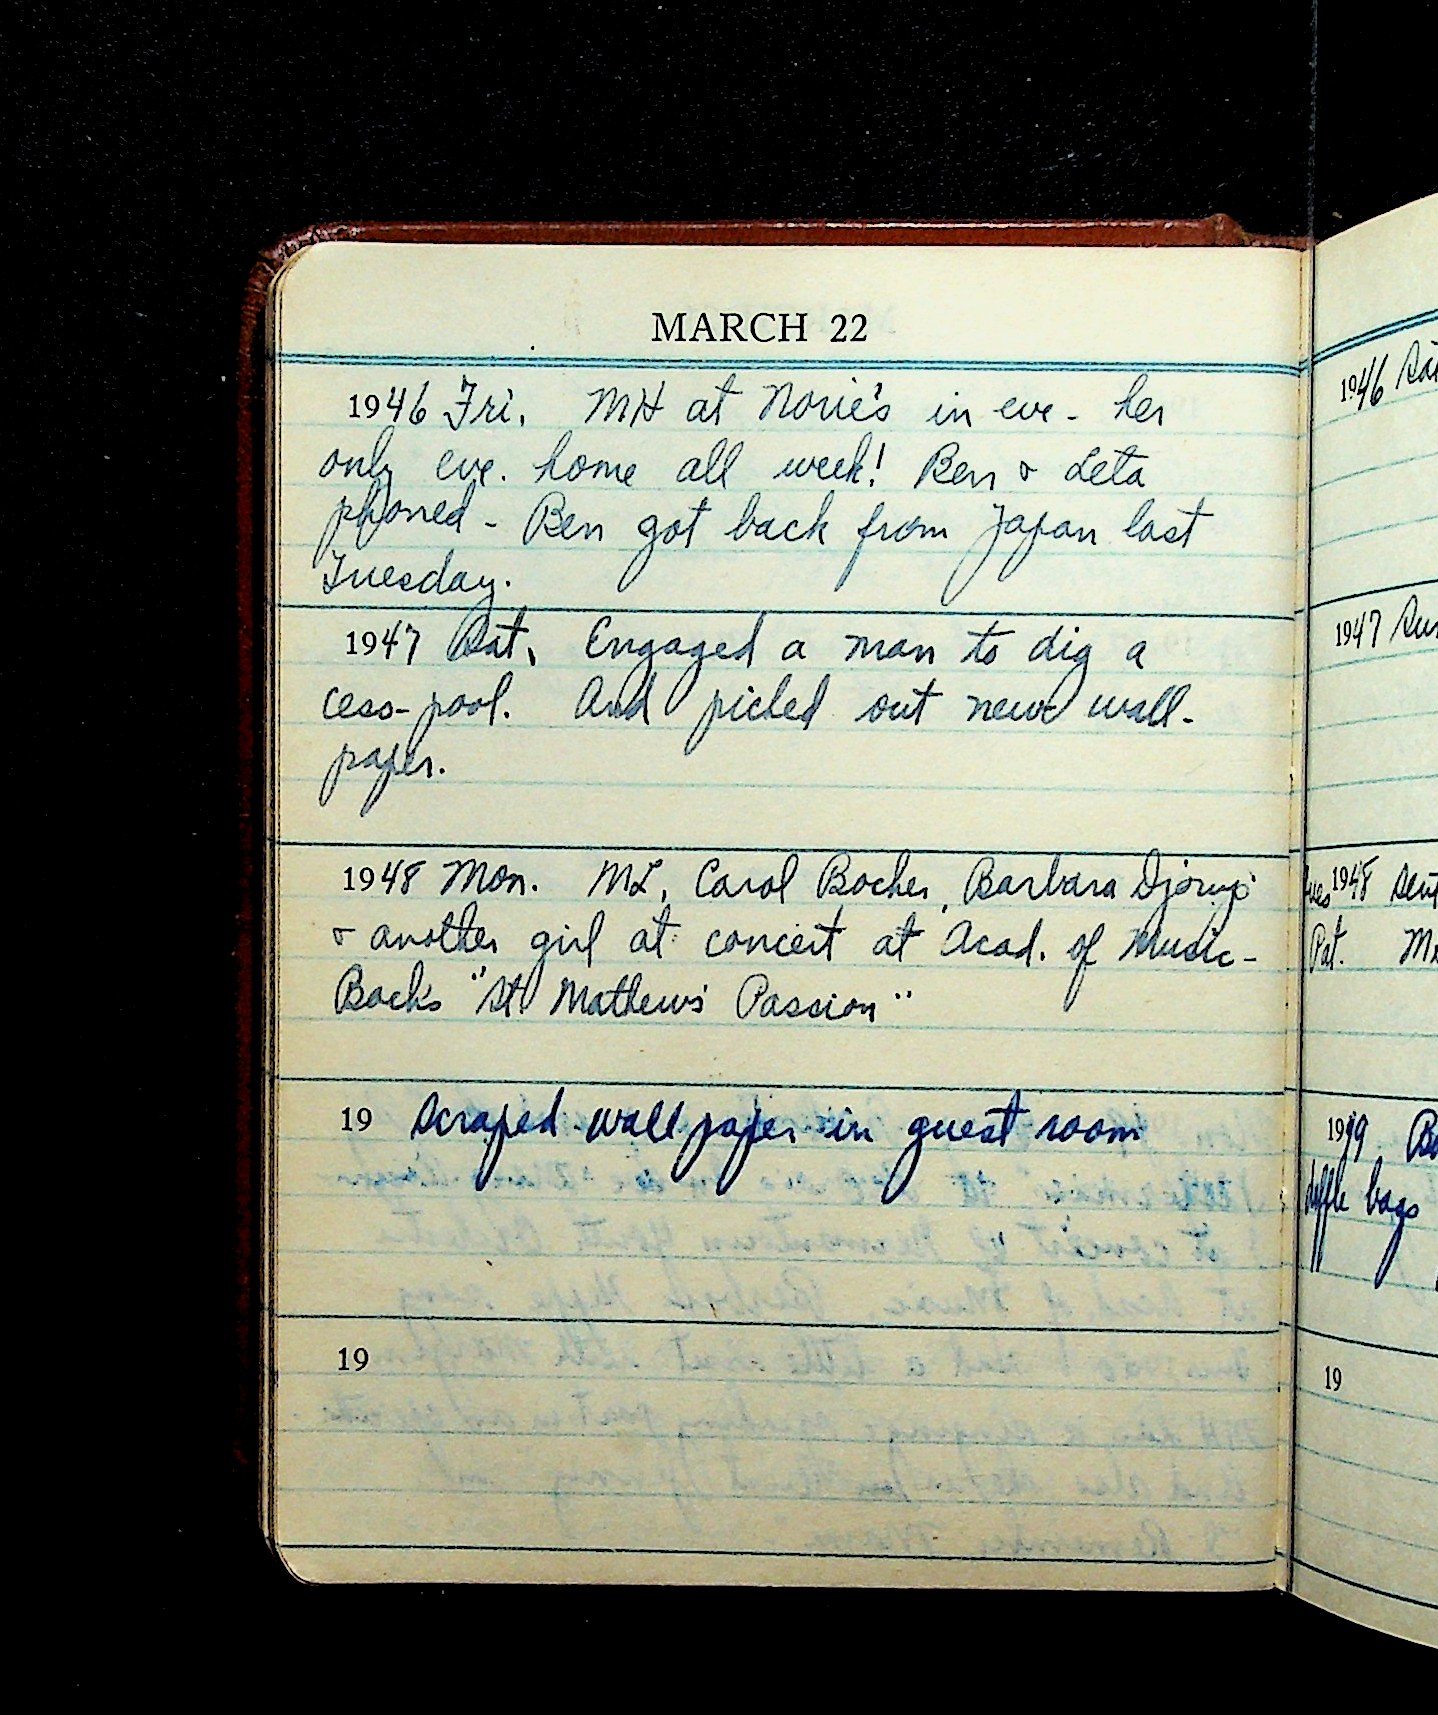 MARCH 22
1946 Fri. MH at Norie's in eve - her
only eve. home all week! Ben & Leta
phoned - Ben got back from Japan last
Tuesday.
1947 Sat. Engaged a man to dig a
cess-pool. And picked out new wall-
paper.
1948 Mon. ML, Carol Bocher, Barbara
& another girl at concert at Acad. of Music -
Bach's "St. Mathew's Passion"
19 Scraped wall paper in guest room
19
1946
1947
1948
Pat.
1949
duffle bags
19